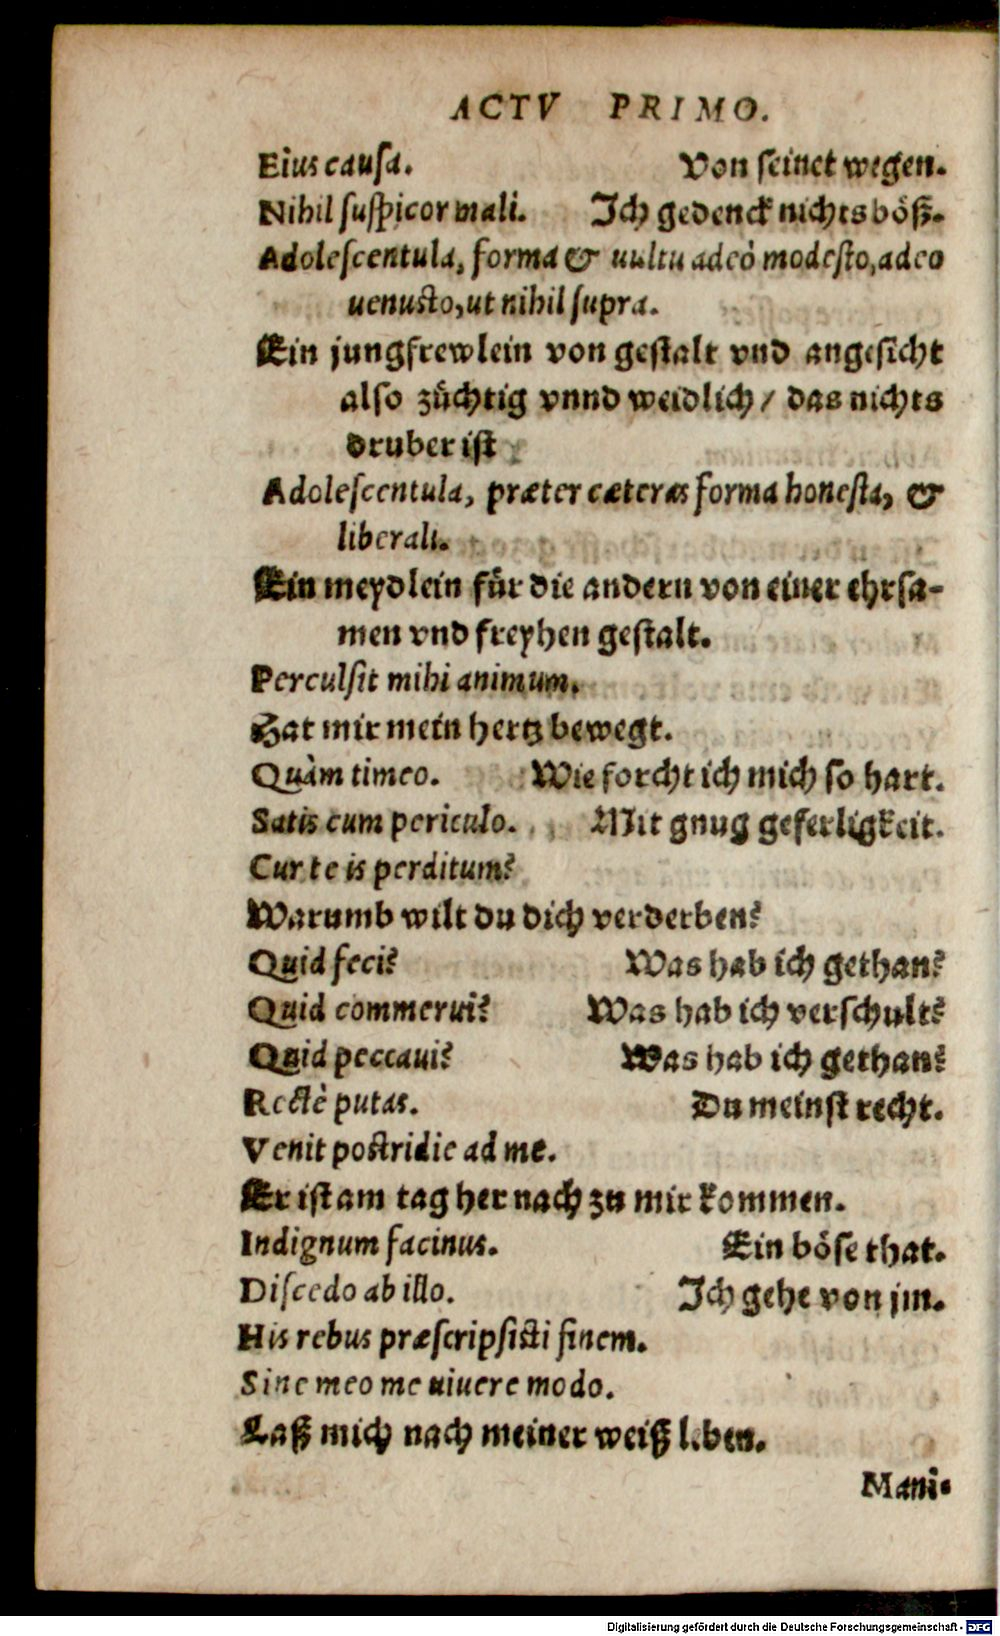 ACTV PRIMO.
Eius causa. Von seinet wegen.
Nihil suspicor mali. Ich gedenck nichts böß.
Adolescentula, forma & uultu adeò modesto, adeo
uenusto, ut nihil supra.
Ein jungfrewlein von gestalt vnd angesicht
also züchtig vnnd weidlich / das nichts
druber ist
Adolescentula, præter cæteras forma honesta, &
liberali.
Ein meydlein für die andern von einer ehrsa-
men vnd freyhen gestalt.
Perculsit mihi animum.
Hat mir mein hertz bewegt.
Quàm timeo. Wie forcht ich mich so hart.
Satis cum periculo. Mit gnug geferligkeit.
Cur te is perditum?
Warumb wilt du dich verderben?
Quid feci? Was hab ich gethan?
Quid commerui? Was hab ich verschult?
Quid peccaui? Was hab ich gethan?
Rectè putas. Du meinst recht.
Venit postridie ad me.
Er ist am tag her nach zu mir kommen.
Indignum facinus. Ein böse that.
Discedo ab illo. Ich gehe von jm.
His rebus præscripsisti finem.
Sine meo me uiuere modo.
Laß mich nach meiner weiß leben.
Mani-
Digitalisierung gefördert durch die Deutsche Forschungsgemeinschaft - DFG